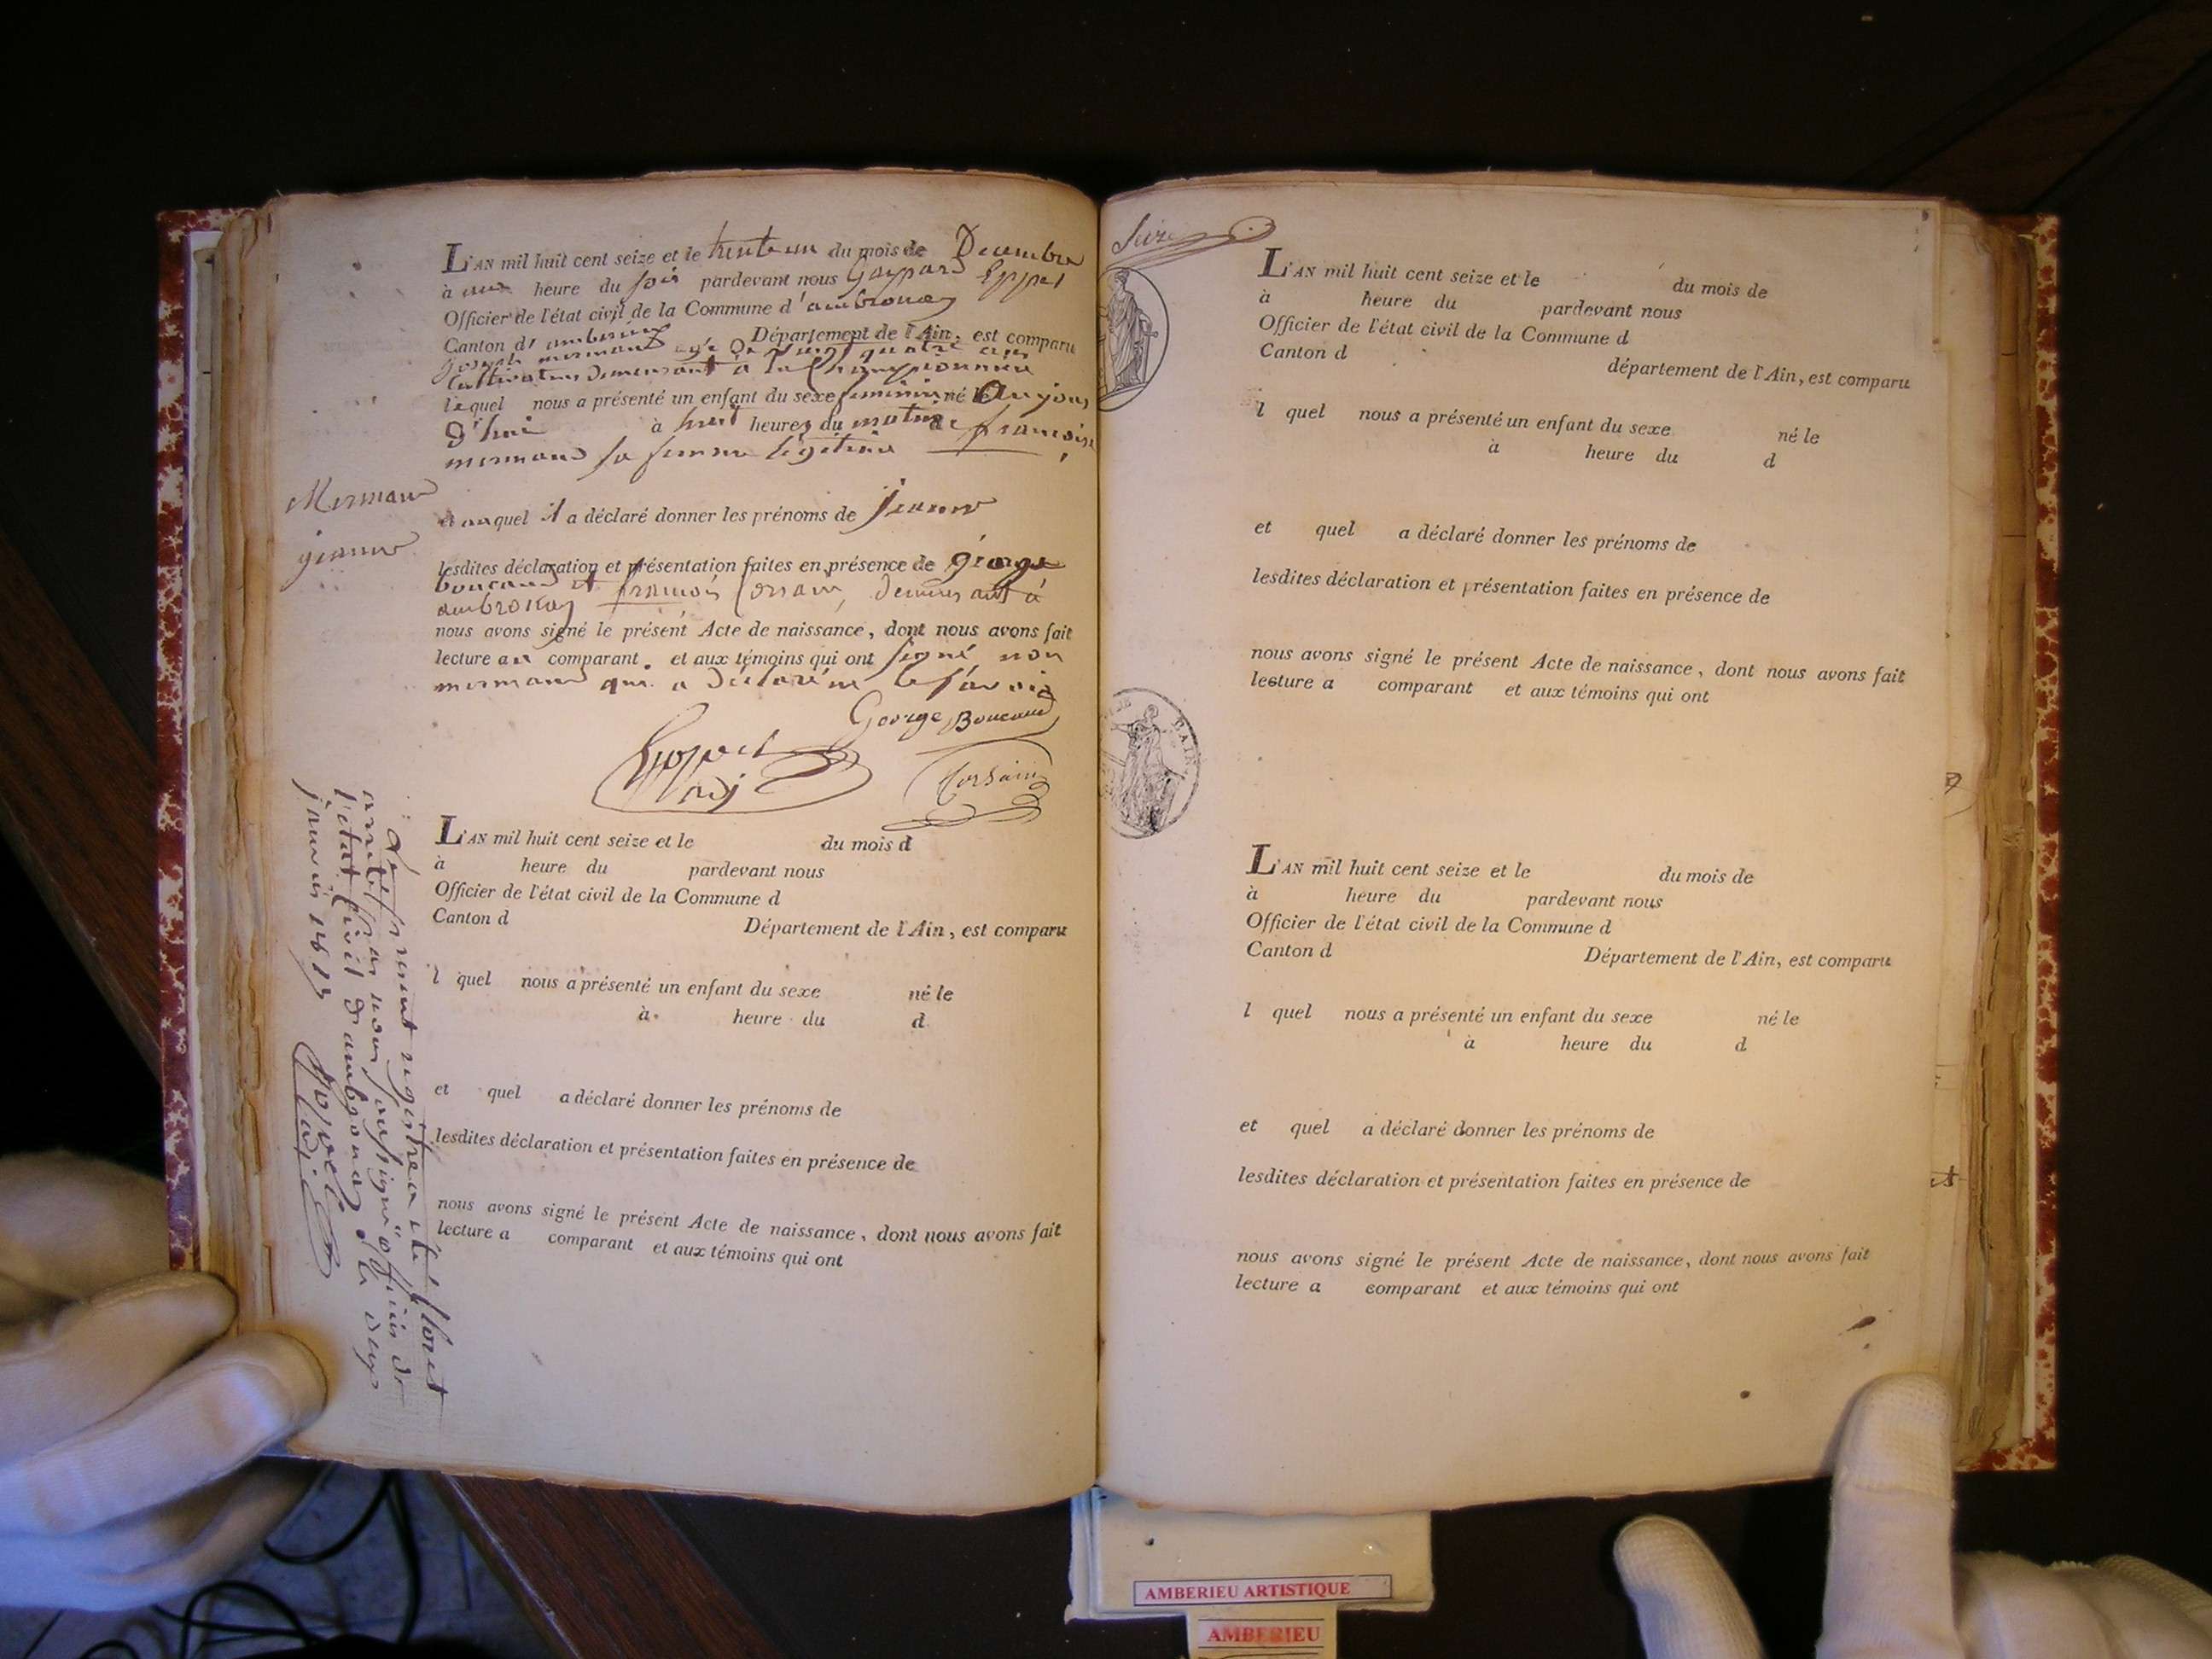 L'AN mil huit cent seize et le trente un du mois de Decembre
à une heure du soir pardevant nous Gaspard Eppel
Officier de l'état civil de la Commune d'ambronay
Canton d'amberieux Département de l'Ain, est comparu
joseph mermand agé de vingt quatre ans
Cultivateur demeurant à la Championniere
lequel nous a présenté un enfant du sexe feminin né le Aujour
d'hui à huit heures du matin de françoise
mermand sa femme légitime
Mermand
jeanne
et auquel il a déclaré donner les prénoms de jeanne
lesdites déclaration et présentation faites en présence de george
boucand et françois Corsain, demeurant à
ambronay
nous avons signé le présent Acte de naissance, dont nous avons fait
lecture au comparant. et aux témoins qui ont signé non
mermand qui a déclaré ne le savoir
George Boucand
Corsain
L'AN mil huit cent seize et le du mois d
à heure du pardevant nous
Officier de l'état civil de la Commune d
Canton d Département de l'Ain, est comparu
l quel nous a présenté un enfant du sexe né le
à heure du d
et quel a déclaré donner les prénoms de
lesdites déclaration et présentation faites en présence de
nous avons signé le présent Acte de naissance, dont nous avons fait
lecture a comparant et aux témoins qui ont
Le present registre a été Clos et
arrêté par nous soussigné officier de
l'état Civil d'ambronay le deux
janvier 1817
Seize
L'AN mil huit cent seize et le du mois de
à heure du pardevant nous
Officier de l'état civil de la Commune d
Canton d département de l'Ain, est comparu
l quel nous a présenté un enfant du sexe né le
à heure du d
et quel a déclaré donner les prénoms de
lesdites déclaration et présentation faites en présence de
nous avons signé le présent Acte de naissance, dont nous avons fait
lecture a comparant et aux témoins qui ont
L'AN mil huit cent seize et le du mois de
à heure du pardevant nous
Officier de l'état civil de la Commune d
Canton d Département de l'Ain, est comparu
l quel nous a présenté un enfant du sexe né le
à heure du d
et quel a déclaré donner les prénoms de
lesdites déclaration et présentation faites en présence de
nous avons signé le présent Acte de naissance, dont nous avons fait
lecture a comparant et aux témoins qui ont
AMBERIEU ARTISTIQUE
AMBERIEU